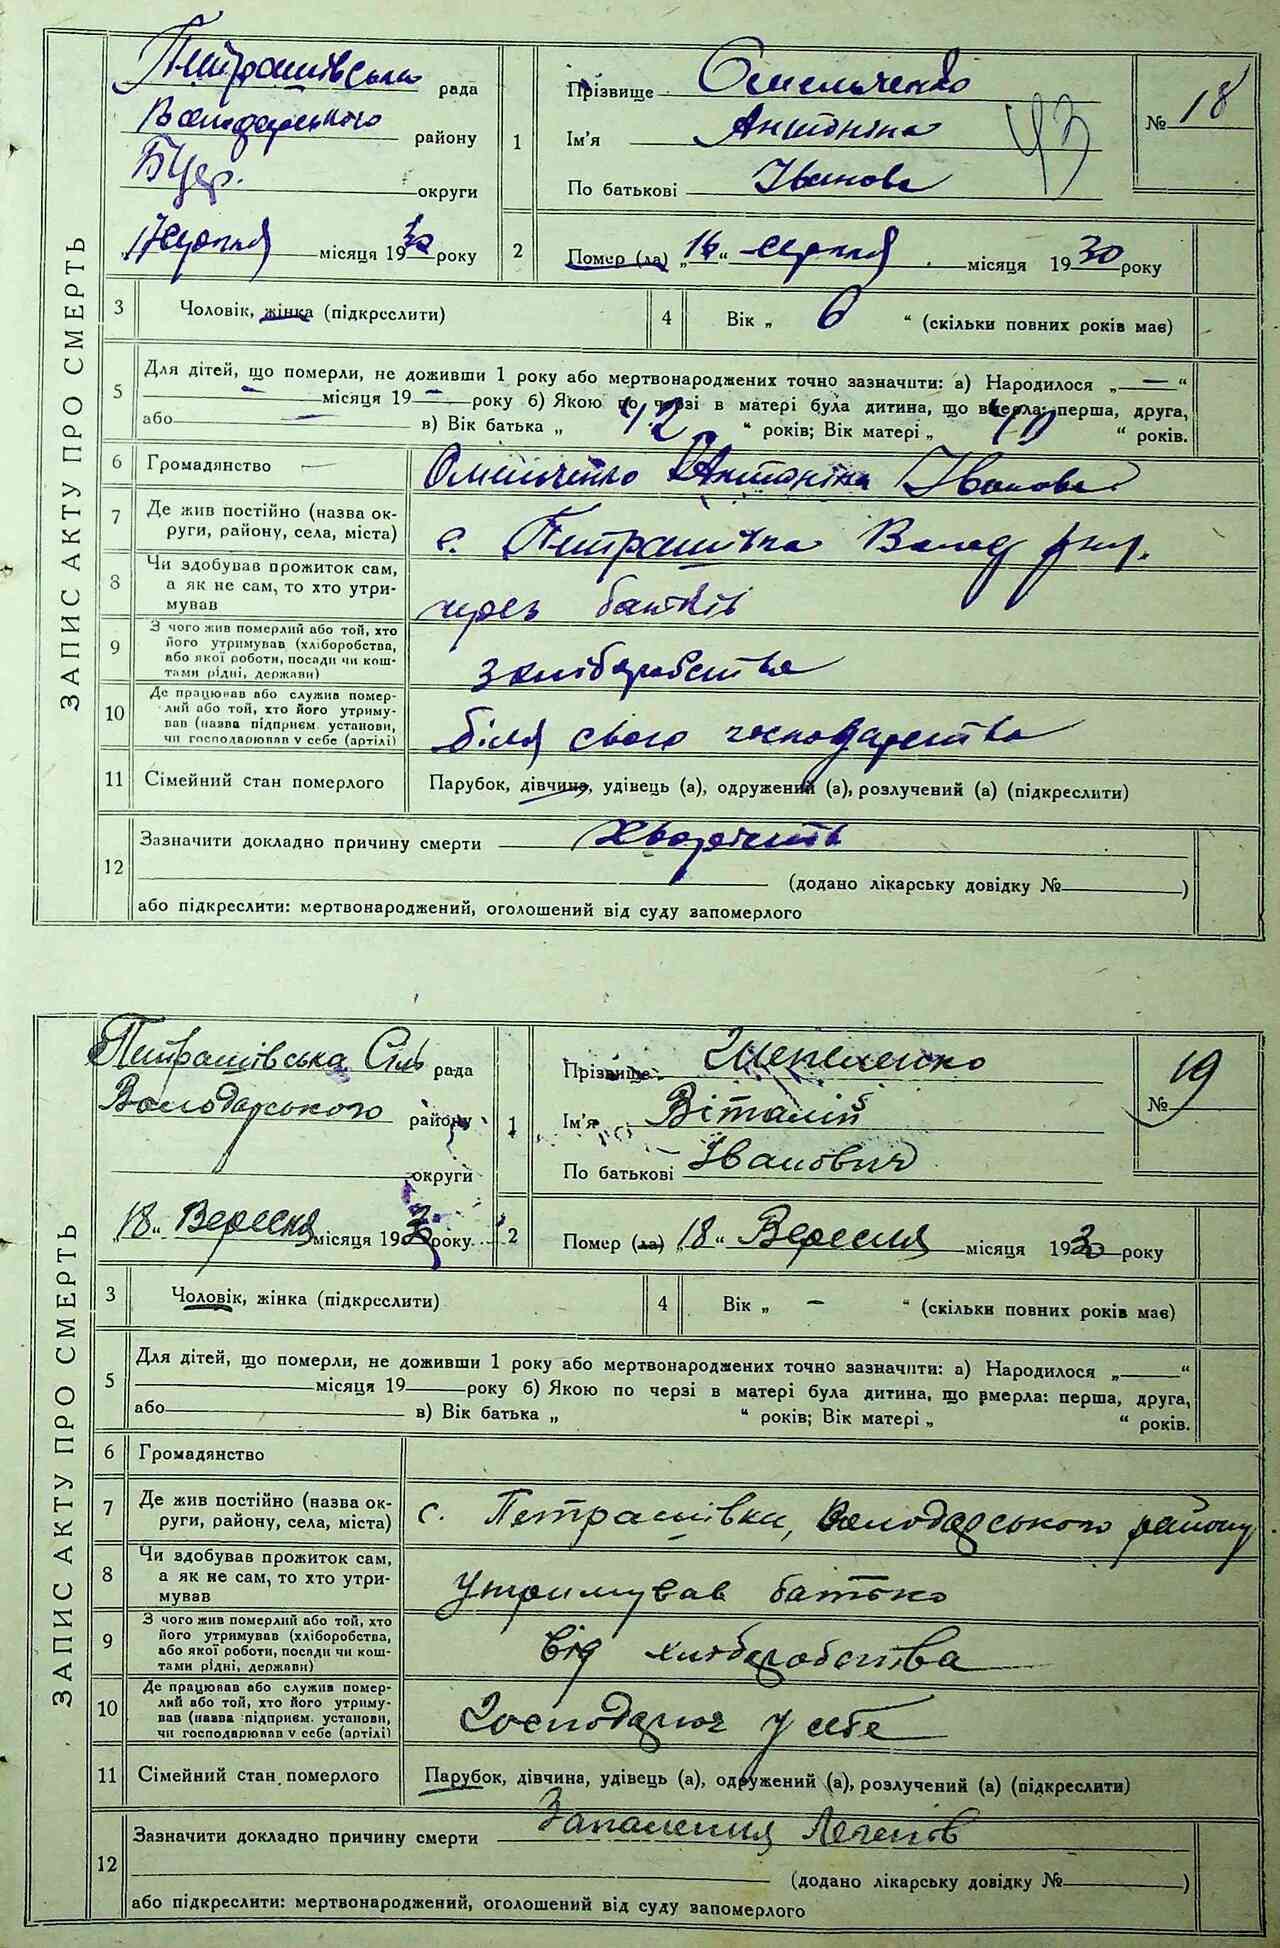 ЗАПИС АКТУ ПРО СМЕРТЬ
Петрашівська рада
Володарського району
БЦер. округи
17 серпня місяця 1930 року
1 Прізвище Омельченко
Ім'я Антоніна
По батькові Іванова
43
№ 18
2 Помер (ла) „16“ серпня місяця 1930 року
3 Чоловік, жінка (підкреслити)
4 Вік „ 6 “ (скільки повних років має)
5 Для дітей, що померли, не доживши 1 року або мертвонароджених точно зазначити: а) Народилося „ — “
— місяця 19 — року б) Якою по черзі в матері була дитина, що вмерла: перша, друга,
або — в) Вік батька „ 42 “ років; Вік матері „ 40 “ років.
6 Громадянство — Омельченко Антоніна Іванова
7 Де жив постійно (назва ок-
руги, району, села, міста) с. Петрашівка Волод
8 Чи здобував прожиток сам,
а як не сам, то хто утри-
мував через батьків
9 З чого жив померлий або той, хто
його утримував (хліборобства,
або якої роботи, посади чи кош-
тами рідні, держави) з хліборобства
10 Де працював або служив помер-
лий або той, хто його утриму-
вав (назва підприєм. установи,
чи господарював у себе (артілі) біля свого господарства
11 Сімейний стан померлого Парубок, дівчина, удівець (а), одружений (а), розлучевий (а) (підкреслити)
12 Зазначити докладно причину смерти
(додано лікарську довідку № )
або підкреслити: мертвонароджений, оголошений від суду запомерлого
ЗАПИС АКТУ ПРО СМЕРТЬ
Петрашівська Сіль рада
Володарського району
округи
„18“ Вересня місяця 1930 року
1 Прізвище Шепеленко
Ім'я Віталій
По батькові Іванович
№ 19
2 Помер (ла) „18“ Вересня місяця 1930 року
3 Чоловік, жінка (підкреслити)
4 Вік „ — “ (скільки повних років має)
5 Для дітей, що померли, не доживши 1 року або мертвонароджених точно зазначити: а) Народилося „ “
місяця 19 року б) Якою по черзі в матері була дитина, що вмерла: перша, друга,
або в) Вік батька „ “ років; Вік матері „ “ років.
6 Громадянство
7 Де жив постійно (назва ок-
руги, району, села, міста) с. Петрашівки, Володарського району
8 Чи здобував прожиток сам,
а як не сам, то хто утри-
мував утримував батько
9 З чого жив померлий або той, хто
його утримував (хліборобства,
або якої роботи, посади чи кош-
тами рідні, держави) від хліборобства
10 Де працював або служив помер-
лий або той, хто його утриму-
вав (назва підприєм. установи,
чи господарював у себе (артілі) Господарює у себе
11 Сімейний стан померлого Парубок, дівчина, удівець (а), одружений (а), розлучений (а) (підкреслити)
12 Зазначити докладно причину смерти Запалення Легенів
(додано лікарську довідку № )
або підкреслити: мертвонароджений, оголошений від суду запомерлого